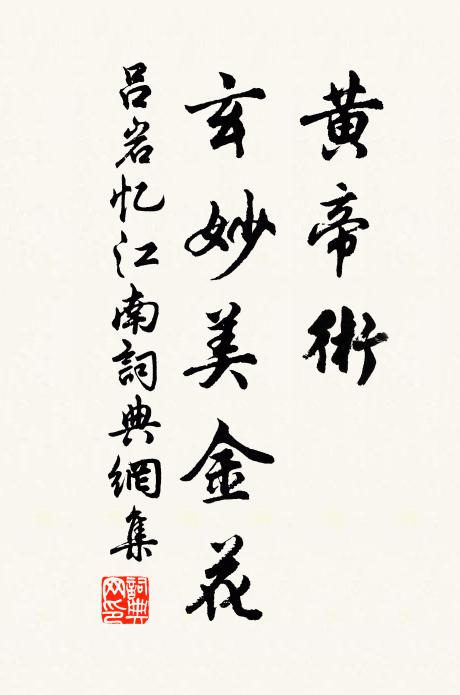 黄帝術
玄妙美金花
吕岩忆江南詞典網集
詞典
网印